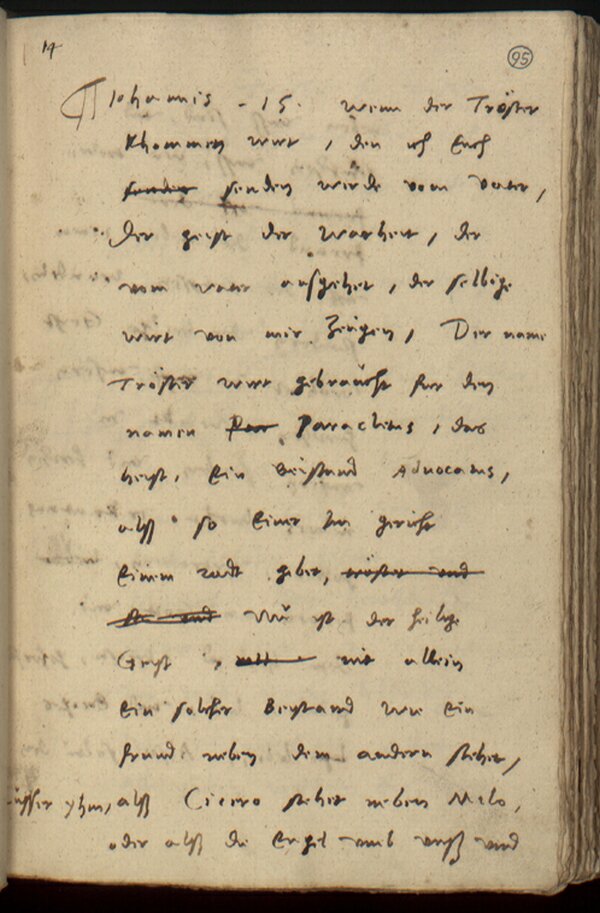 14
95
Johannis . 15. wenn der Tröster
khommen wirt, den ich Euch
sender senden werde vom vater,
Der geist der warheit, der
vom vater ausgehet, der selbige
wirt von mir Zeugen, Der name
Tröster wirt gebraucht fur den
namen Par Paracletus, das
heist, Ein Beistand Advocatus,
alß so Einer Im gericht
Einem radt gebet, tröster und
Nu ist der heilige
Geist, nit allein
Ein solcher Beystand wie Ein
freund neben dem andern stehet,
ausser yhm, alß Cicero stehet neben Milo,
oder alß die Engel umb unß und